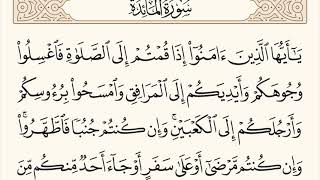 سُورَةُ المَائِدَةِ
يَـٰٓأَيُّهَا ٱلَّذِينَ ءَامَنُوٓا۟ إِذَا قُمْتُمْ إِلَى ٱلصَّلَوٰةِ فَٱغْسِلُوا۟
وُجُوهَكُمْ وَأَيْدِيَكُمْ إِلَى ٱلْمَرَافِقِ وَٱمْسَحُوا۟ بِرُءُوسِكُمْ
وَأَرْجُلَكُمْ إِلَى ٱلْكَعْبَيْنِ ۚ وَإِن كُنتُمْ جُنُبًا فَٱطَّهَّرُوا۟ ۚ
وَإِن كُنتُم مَّرْضَىٰٓ أَوْ عَلَىٰ سَفَرٍ أَوْ جَآءَ أَحَدٌ مِّنكُم مِّنَ